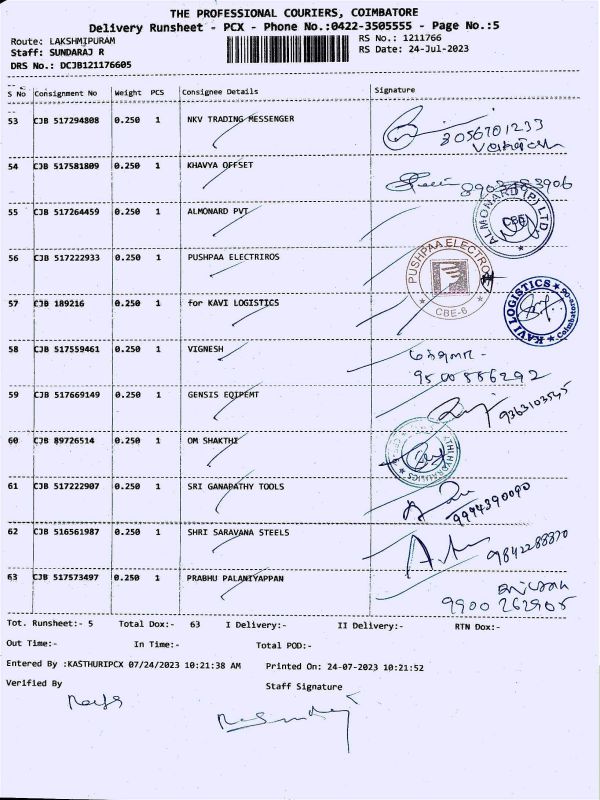 THE PROFESSIONAL COURIERS, COIMBATORE
Delivery Runsheet - PCX - Phone No.:0422-3505555 - Page No.:5
Route: LAKSHMIPURAM RS No.: 1211766
Staff: SUNDARAJ R RS Date: 24-Jul-2023
DRS No.: DCJB121176605
S No Consignment No Weight PCS Consignee Details Signature
53 CJB 517294808 0.250 1 NKV TRADING MESSENGER
8056701233
54 CJB 517581809 0.250 1 KHAVYA OFFSET
55 CJB 517264459 0.250 1 ALMONARD PVT
ALMONARD (P) LTD
CBE
56 CJB 517222933 0.250 1 PUSHPAA ELECTRIROS
PUSHPAA ELECTRO
CBE-6
57 CJB 189216 0.250 1 for KAVI LOGISTICS
KAVI LOGISTICS
58 CJB 517559461 0.250 1 VIGNESH
9500556292
59 CJB 517669149 0.250 1 GENSIS EQIPEMT
9363103545
60 CJB 89726514 0.250 1 OM SHAKTHI
61 CJB 517222907 0.250 1 SRI GANAPATHY TOOLS
9994390090
62 CJB 516561987 0.250 1 SHRI SARAVANA STEELS
9842288870
63 CJB 517573497 0.250 1 PRABHU PALANIYAPPAN
9900262905
Tot. Runsheet:- 5 Total Dox:- 63 I Delivery:- II Delivery:- RTN Dox:-
Out Time:- In Time:- Total POD:-
Entered By :KASTHURIPCX 07/24/2023 10:21:38 AM Printed On: 24-07-2023 10:21:52
Verified By Staff Signature